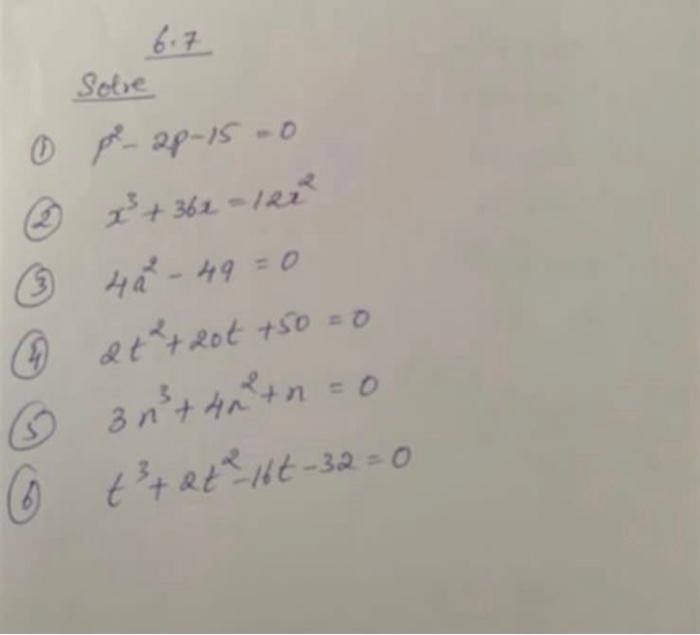 6.7
Solve
① p² - 2p - 15 = 0
② x³ + 36x = 12x²
③ 4a² - 49 = 0
④ 2t² + 20t + 50 = 0
⑤ 3n³ + 4n² + n = 0
⑥ t³ + 2t² - 16t - 32 = 0